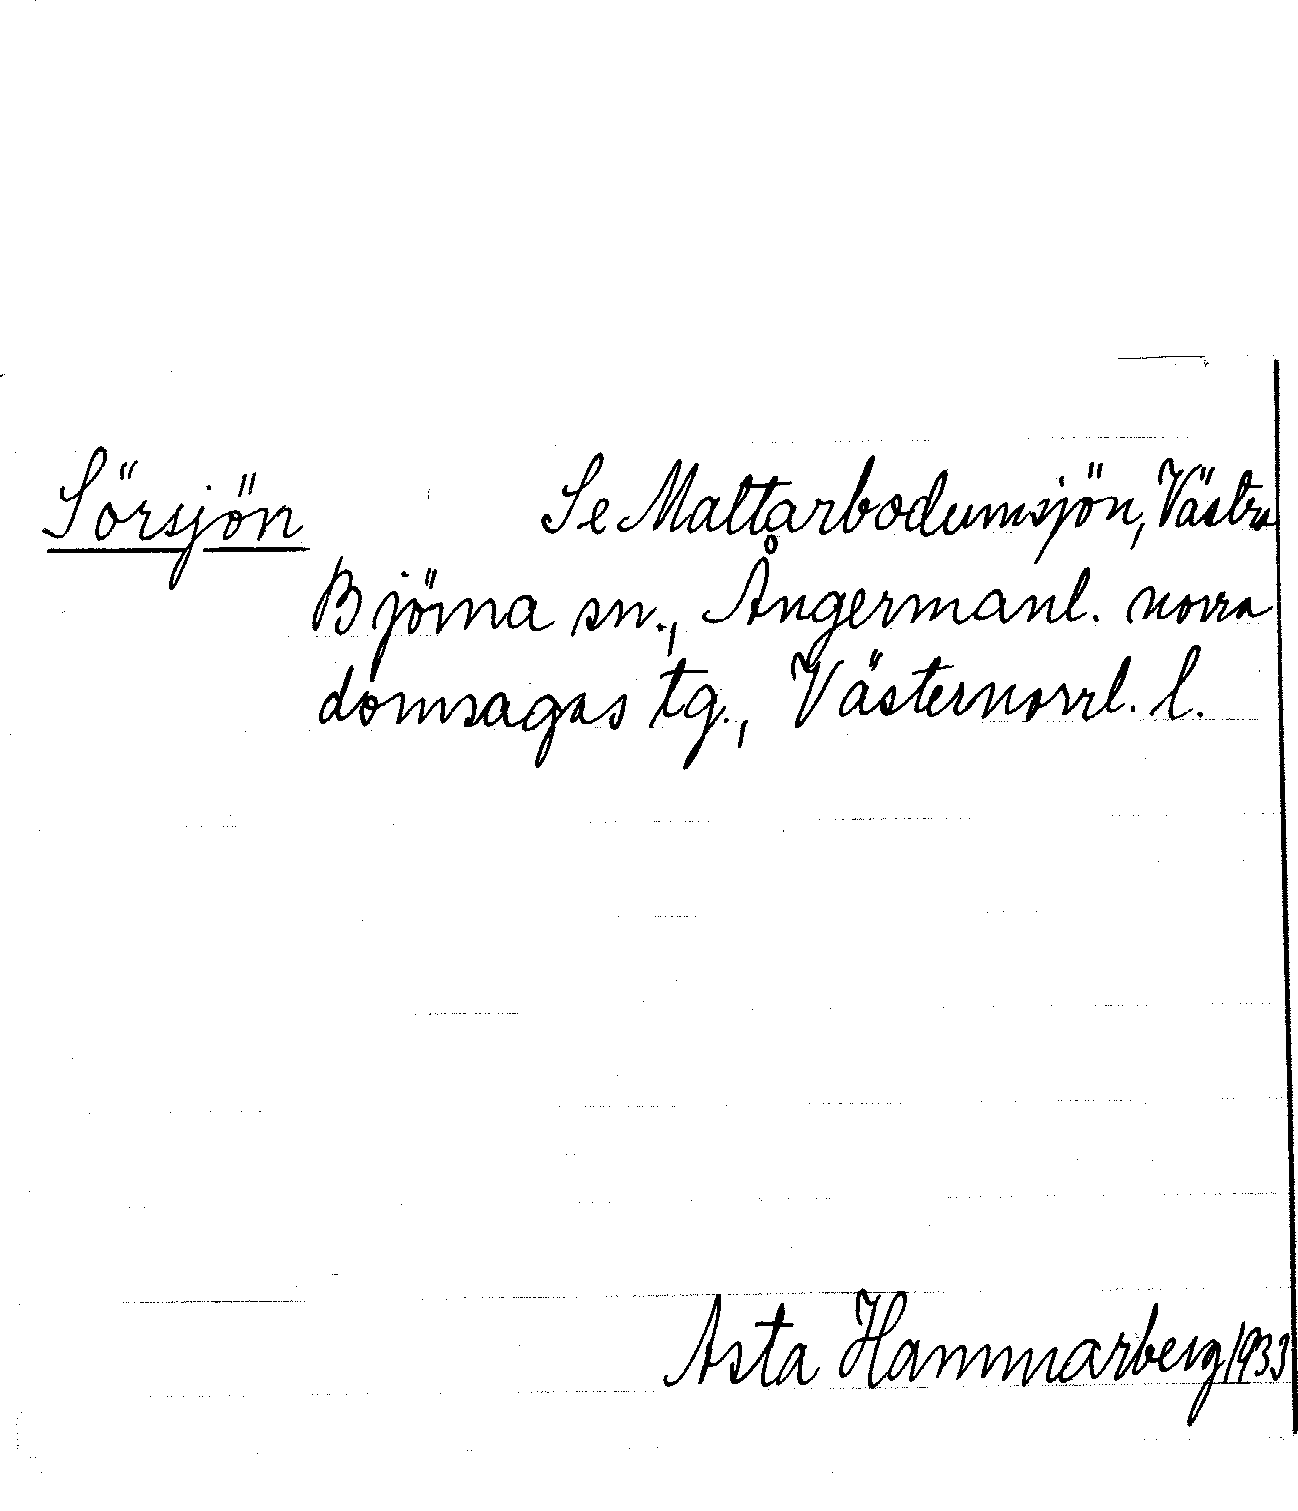 Sörsjön Se Maltarbodumsjön, Västra
Björna sn., Ångermanl. norra
domsagas tg., Västernorrl. l.
Asta Hammarberg 1933